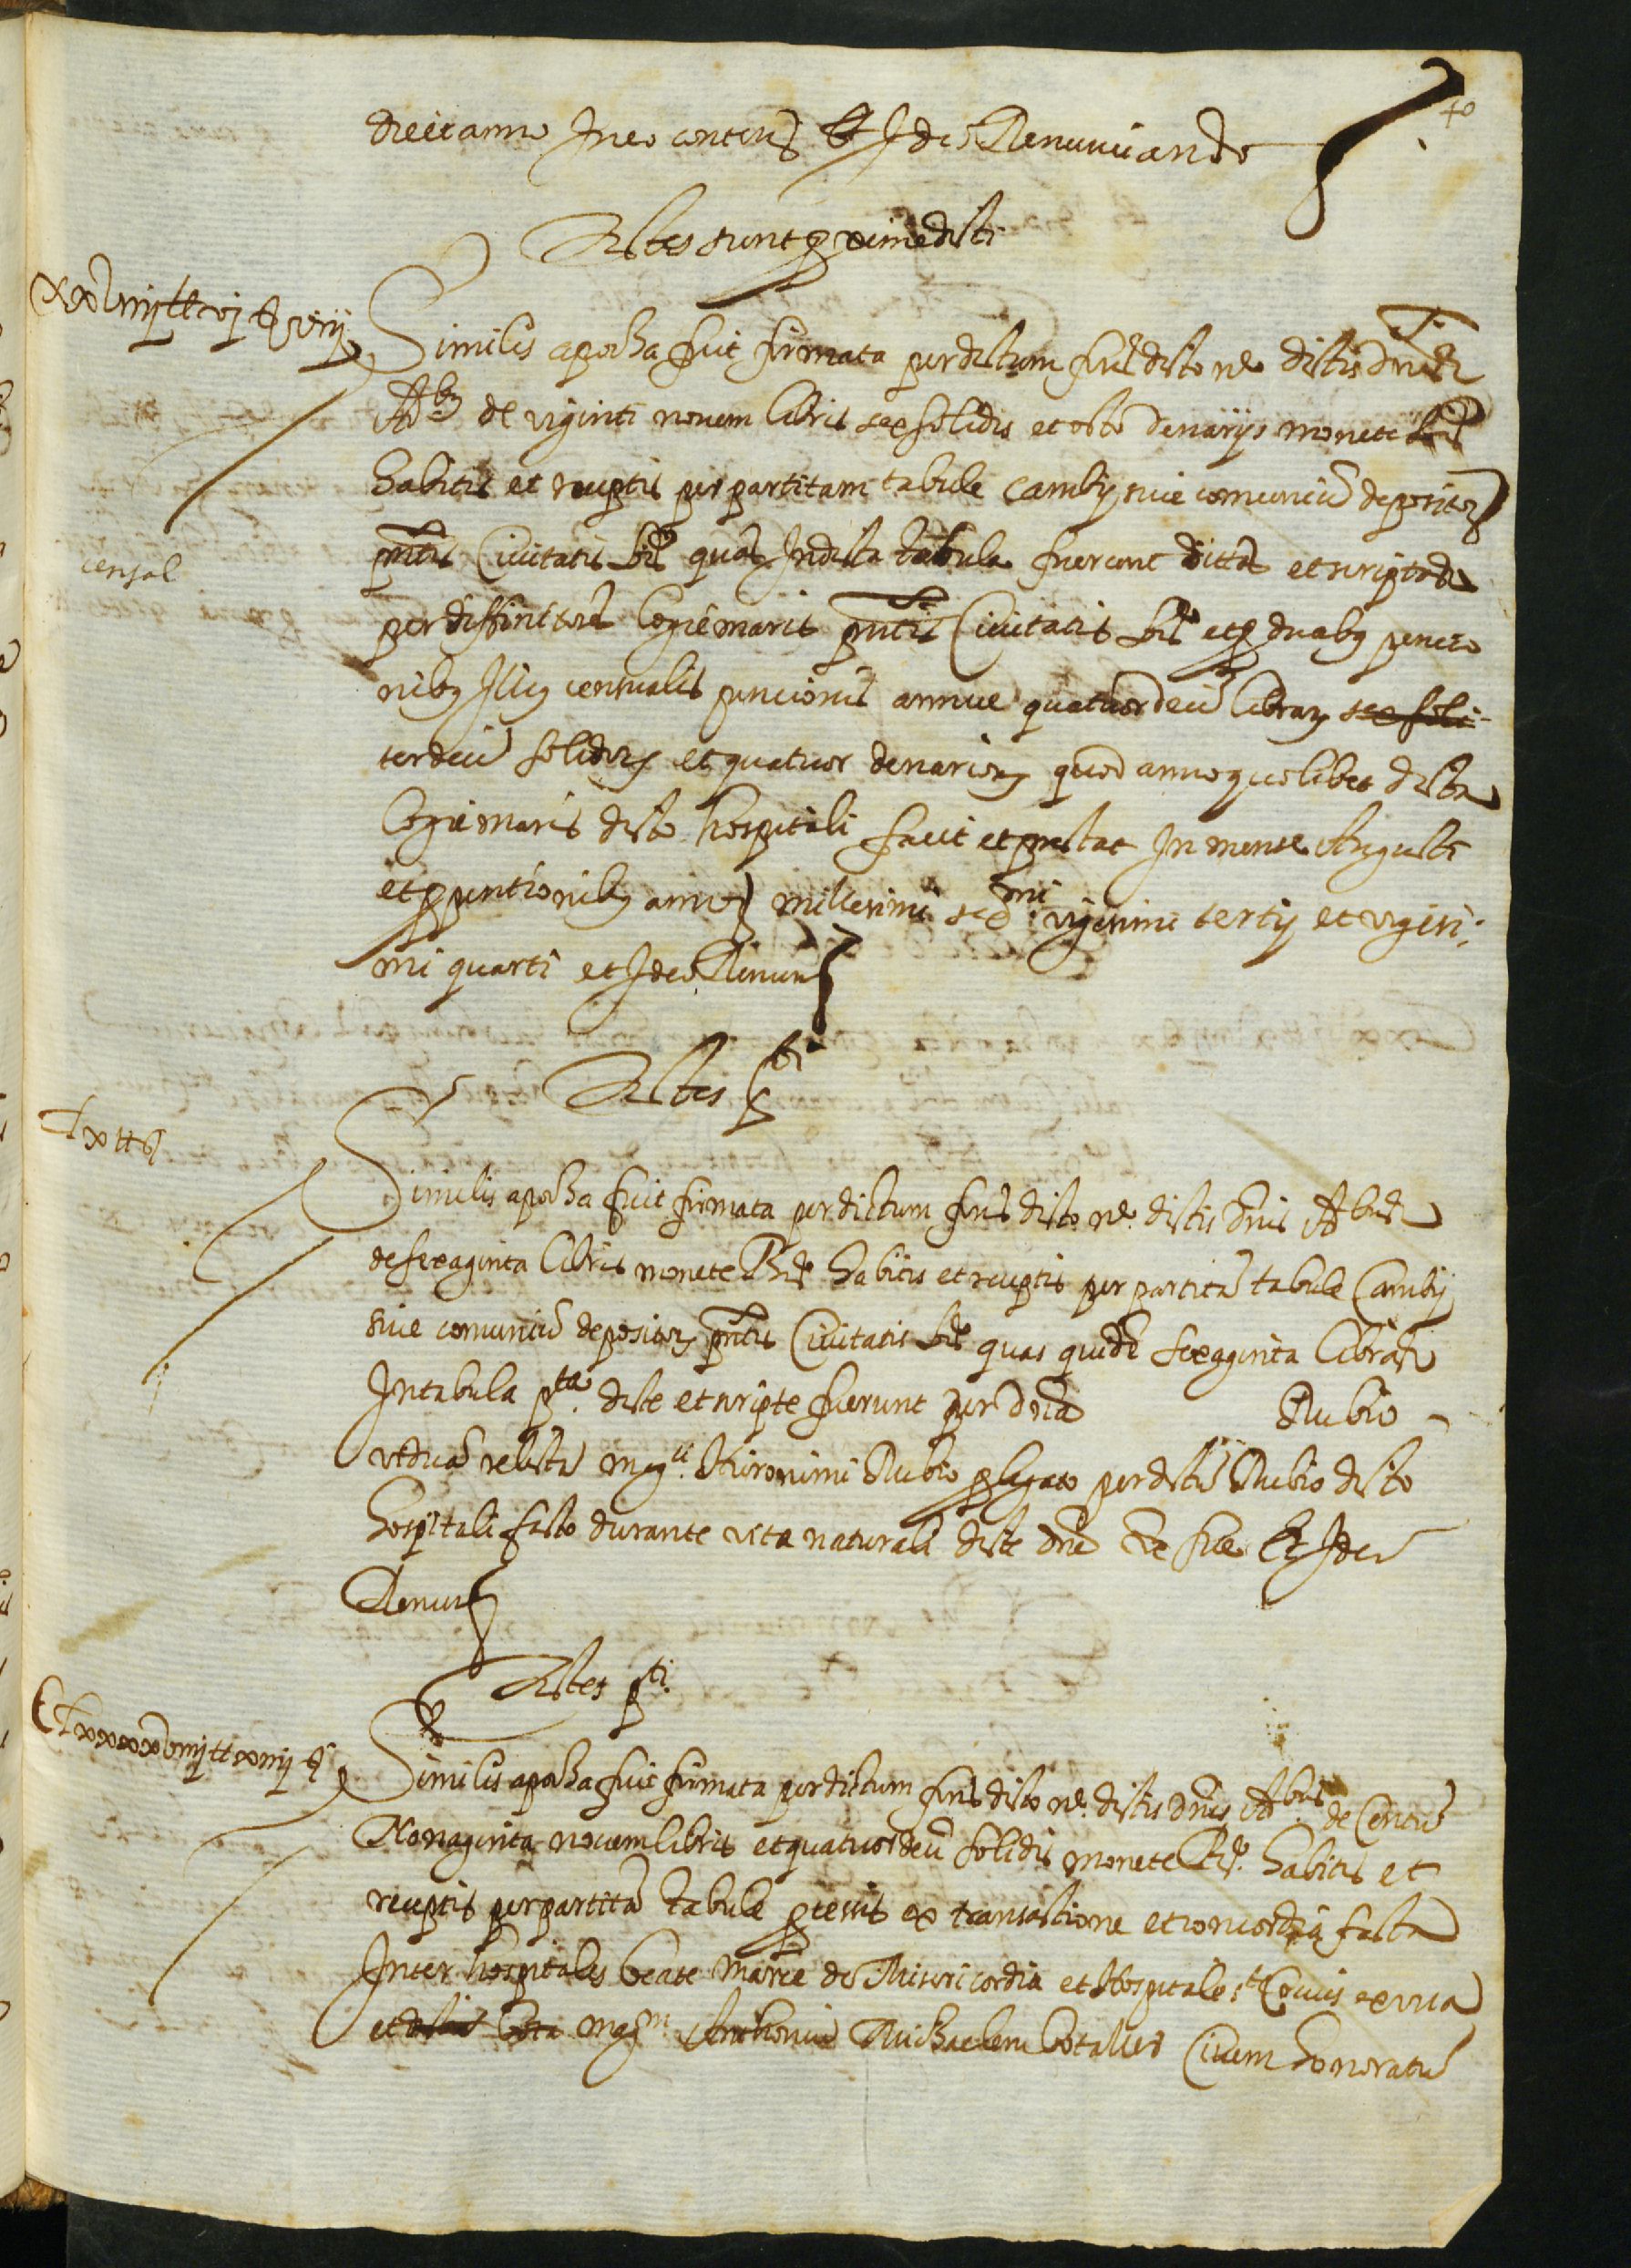 40
dieet anno In eo content Et Ideo Renunciando
Testes sunt proxime dicti
xxviiij ll vj s viij
Similis apocha fuit firmata per dictum sind dicto ne dictis dnis
Abus de viginti novem libris sex solidis et octo denariis monete Bar
habitis et receptis per partitam tabule cambii sive comuniu depositor
pntis Civitatis Bar quas In dicta tabula fuerunt dittas et scriptas
censal
per diffinitores Conciemaris pntis Civitatis Bar et p duabus pencio
nibus Illius censualis pencionis annue quatuordecim librarum sex soli
terdecim solidorum et quatuor denariorum quod anno quolibet dicta
Conciemaris dicto hospitali facit et prestat In mense Augusti
et p pentionibus annor millesimi sexmi vigesimi tertii et vigesi
mi quarti et Ideo Renun
Testes pti
lx ll
Similis apocha fuit firmata per dictum sind dicto ne dictis dnis Abus
de sexaginta libris monete Bar habitis et receptis per partita tabule Cambii
sive comuniu depositor pntis Civitatis Bar quas quide sexaginta libras
In tabula pta dicte et scripte fuerunt per dna Rubio
vidua relicta magci Hieronimi Rubio p legato per dictu Rubio dicto
hospitali facto durante vita naturali dicte dne de sue Et Ideo
Renun
Testes pti
Clxxxxviiij ll xiiij s
Similis apocha fuit firmata per dictum sind dicto ne dictis dnis Abus de Centu
Nonaginta novem libris et quatuordecim solidis monete Bar habitis et
receptis per partita tabule processit ex transactione et concordia facta
Inter hospitales beate Marie de Misericordia et Hospitale ste Crucis ex una
et magm Anthoniu Michaelem Botaller Civem honoratu